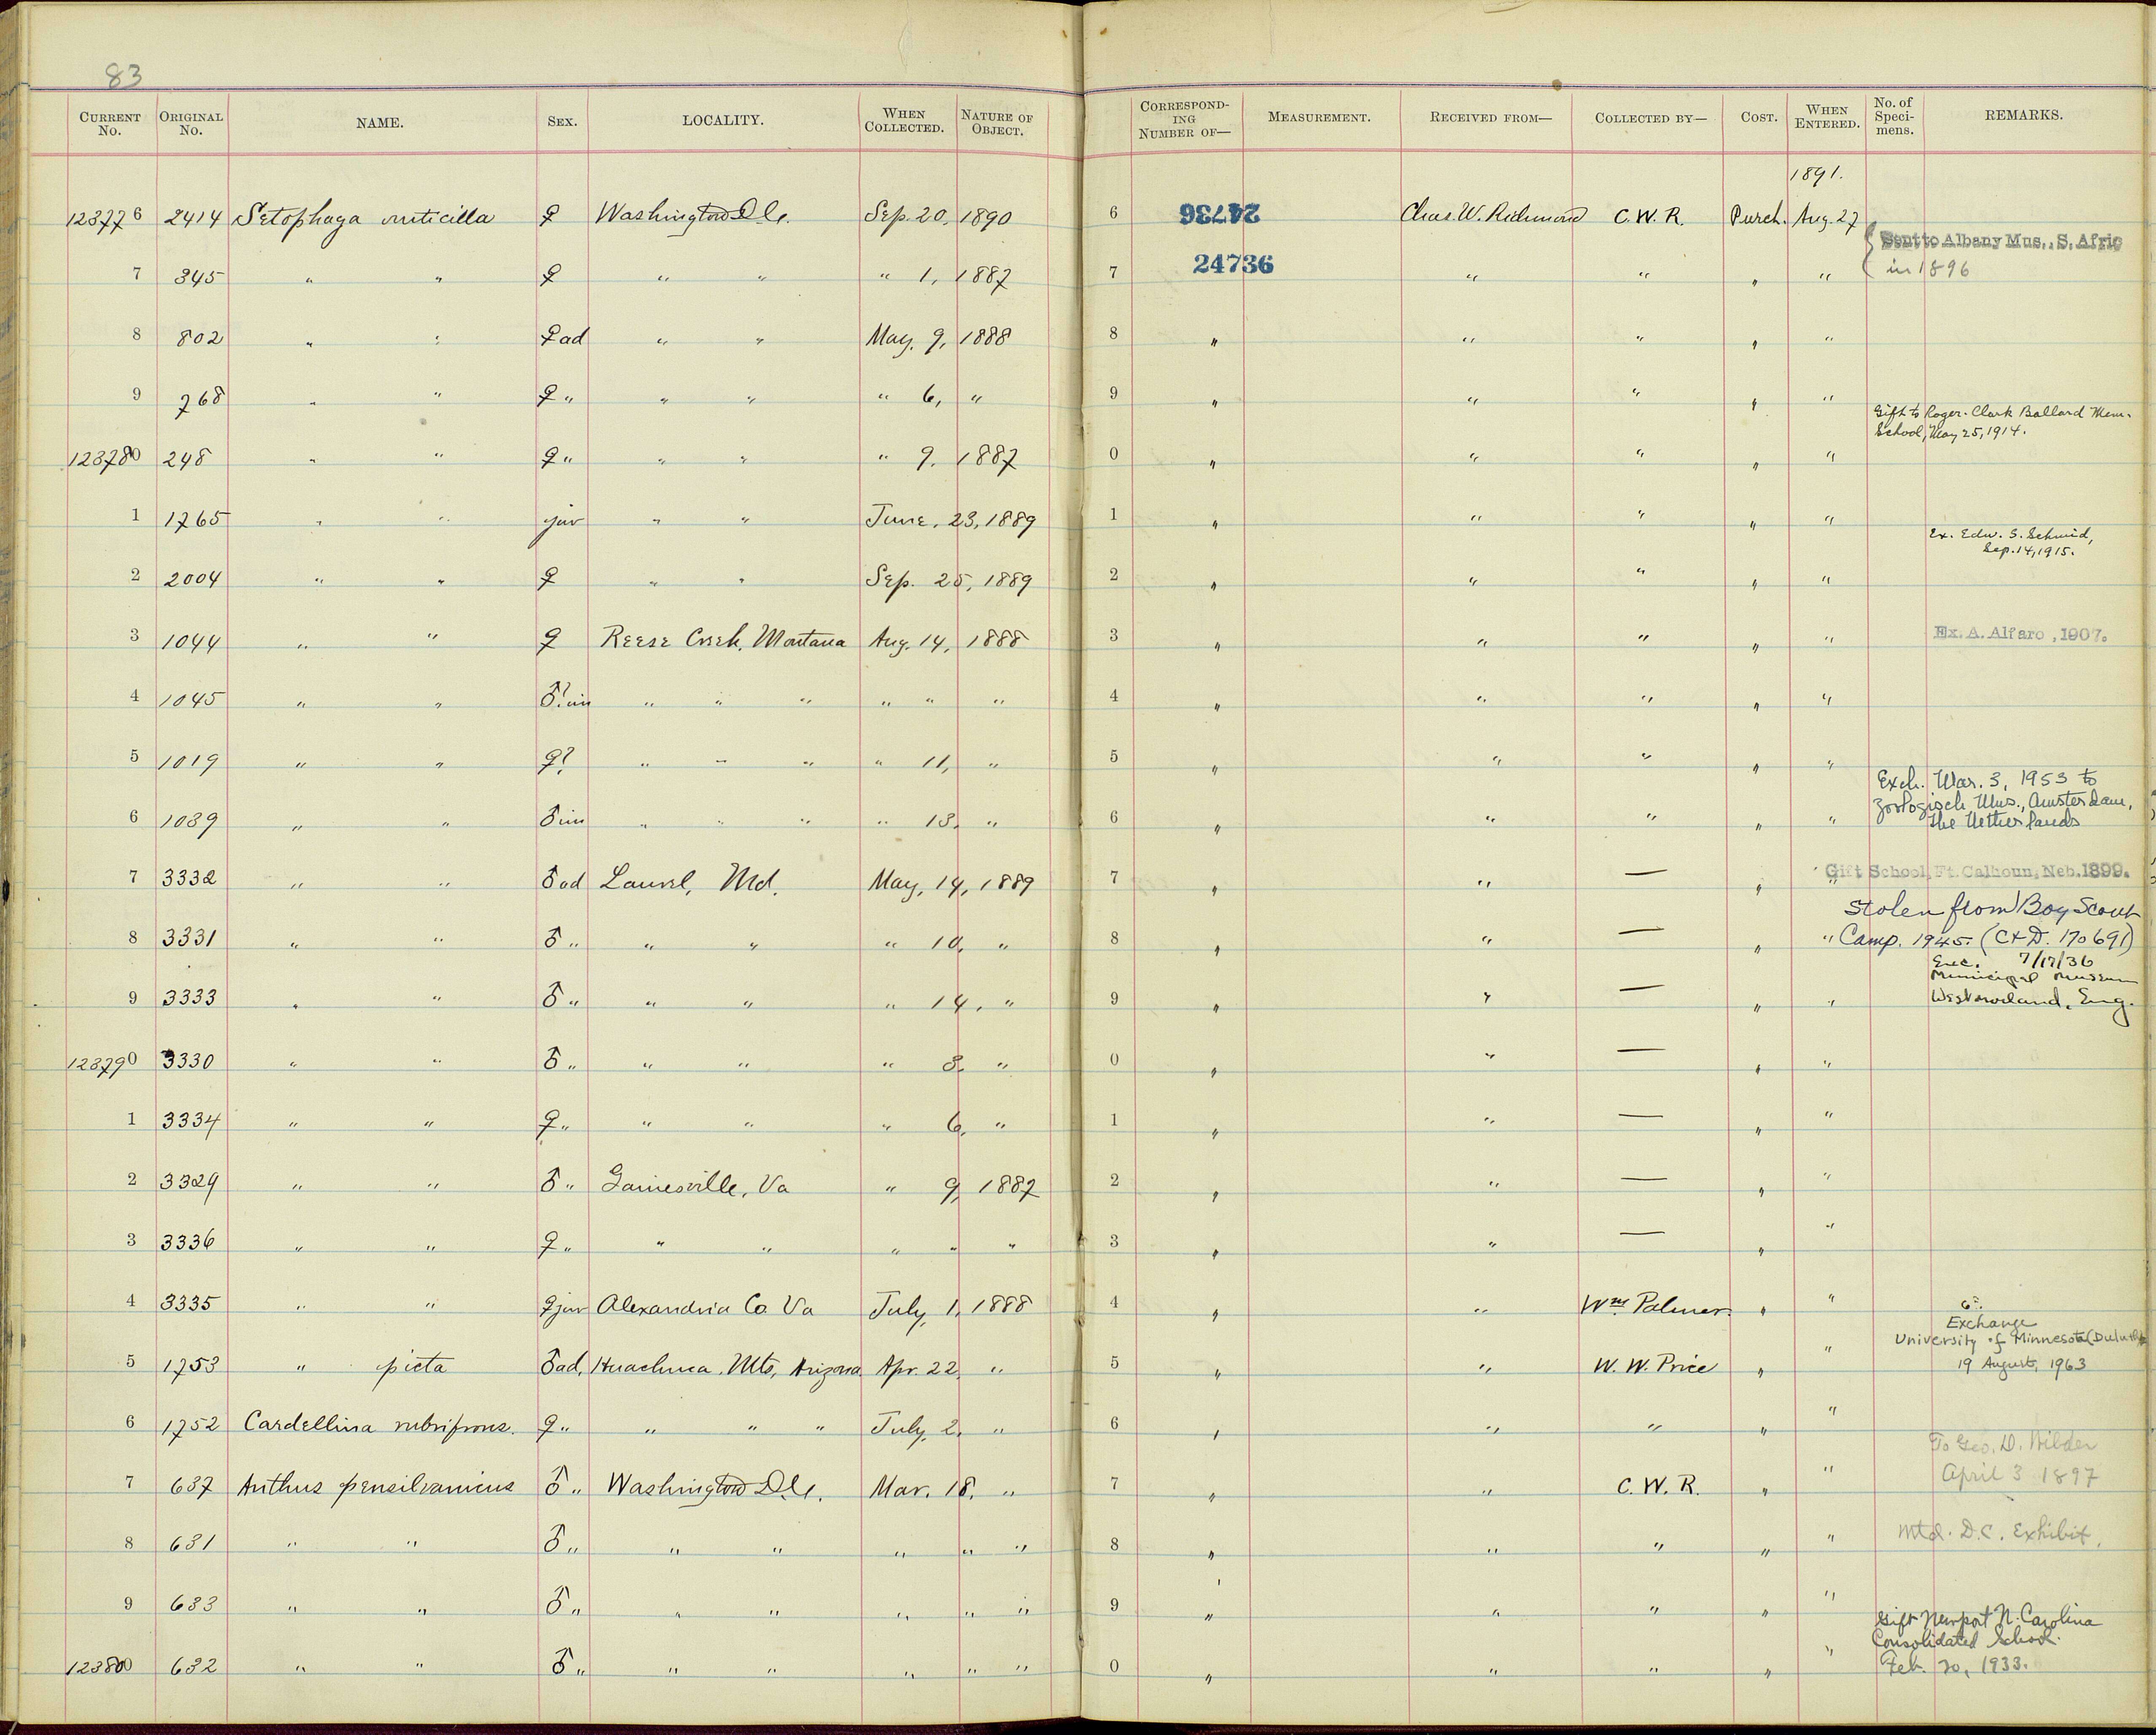 83
CURRENT No. ORIGINAL No. NAME. SEX. LOCALITY. WHEN COLLECTED. NATURE OF OBJECT. CORRESPONDING NUMBER OF— MEASUREMENT. RECEIVED FROM— COLLECTED BY— COST. WHEN ENTERED. No. of Specimens. REMARKS.
1891.
123776 2414 Setophaga ruticilla ♀ Washington D.C. Sep. 20, 1890 6 24736 Chas. W. Richmond C. W. R. Purch. Aug. 27
{ Sent to Albany Mus., S. Afric
7 345 " " ♀ " " " 1, 1887 7 24736 " " " " in 1896
8 802 " " ♀ ad " " May, 9, 1888 8 " " " " "
9 768 " " ♀ " " " " 6, " 9 " " " " "
Gift to Roger Clark Ballard Mem.
School, May 25, 1914.
123780 248 " " ♀ " " " " 9. 1887 0 " " " " "
1 1765 " " juv " " June, 23, 1889 1 " " " " "
Ex. Edw. S. Schmid,
Sep. 14, 1915.
2 2004 " " ♀ " " Sep. 25, 1889 2 " " " " "
3 1044 " " ♀ Reese Creek, Montana Aug. 14, 1888 3 " " " " " Ex. A. Alfaro, 1907.
4 1045 " " ♂? im " " " " " " 4 " " " " "
5 1019 " " ♀? " " " " 11, " 5 " " " " "
Exch. Mar. 3, 1953 to
Zoologisch Mus., Amsterdam,
6 1039 " " ♂ im " " " " 13, " 6 " " " " " the Netherlands
7 3332 " " ♂ ad Laurel, Md. May, 14, 1889 7 " " — " " Gift School, Ft. Calhoun, Neb. 1899.
Stolen from Boy Scout
8 3331 " " ♂ " " " " 10, " 8 " " — " " Camp. 1945. (C+D. 170691)
Exc. 7/17/36
Municipal Museum
9 3333 " " ♂ " " " " 14, " 9 " " — " " Eng.
123790 3330 " " ♂ " " " " 8, " 0 " " — " "
1 3334 " " ♀ " " " " 6, " 1 " " — " "
2 3329 " " ♂ " Gainesville, Va " 9, 1887 2 " " — " "
3 3336 " " ♀ " " " " " " 3 " " — " "
4 3335 " " ♀ juv Alexandria Co. Va July, 1, 1888 4 " " Wm. Palmer. " "
Exchange
University of Minnesota (Duluth)
5 1753 " picta ♂ ad, Huachuca, Mts, Arizona Apr. 22, " 5 " " W. W. Price " " 19 August, 1963
6 1752 Cardellina rubrifrons. ♀ " " " " July, 2, " 6 " " " " "
To Geo. D. Wilder
7 637 Anthus pensilvanicus ♂ " Washington D.C. Mar. 18, " 7 " " C. W. R. " " April 3 1897
8 631 " " ♂ " " " " " " 8 " " " " " Mtd. D.C. Exhibit,
9 633 " " ♂ " " " " " " 9 " " " " "
Gift Newport N. Carolina
Consolidated School.
123800 632 " " ♂ " " " " " " 0 " " " " " Feb. 20, 1933.